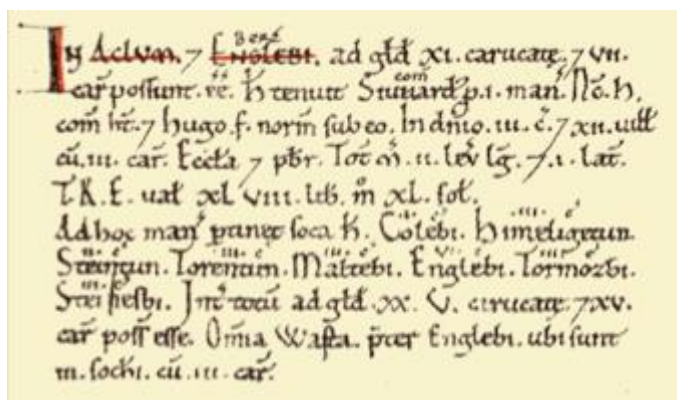 IN Aclum. ⁊ Englebi. ad gld̄ xi. carucate. ⁊ vii.
car̄ possunt. eē. h̄ tenuit Siuuard com̄ p. i. man̄. Nc̄. h.
com̄ ht̄. ⁊ hugo. f. norm̄ sub eo. In dn̄io. iii. c̄. ⁊ xii. uill̄
cū. iii. car̄. Eccl̄a ⁊ pb̄r. Tot m̄. ii. lev̄ lḡ. ⁊ .i. lat̄.
T.R.E. ual̄ xl viii. lib̄. m̊ xl. sol̄.
Ad hoc man̄ ptinet soca h̄. Colebi. Himeligetun.
Steintun. Torentun. Maltebi. Englebi. Tormozbi.
Steinesbi. Int̄ totū ad gld̄ .xx.v. carucate. ⁊ xv.
car̄ poss̄ esse. Om̄ia Wasta. p̄ter Englebi. ubi sunt
iii. soch̄i. cū. iii. car̄.